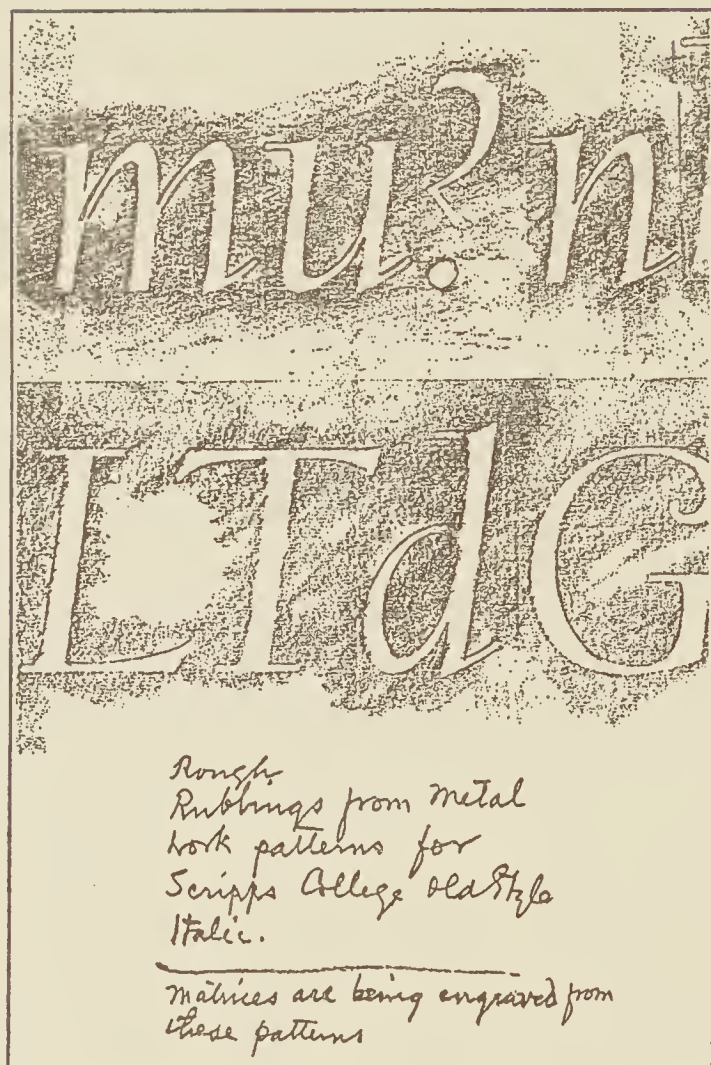 mu?n
LTdG
Rough
Rubbings from metal
work patterns for
Scripps College Old Style
Italic.
Matrices are being engraved from
these patterns